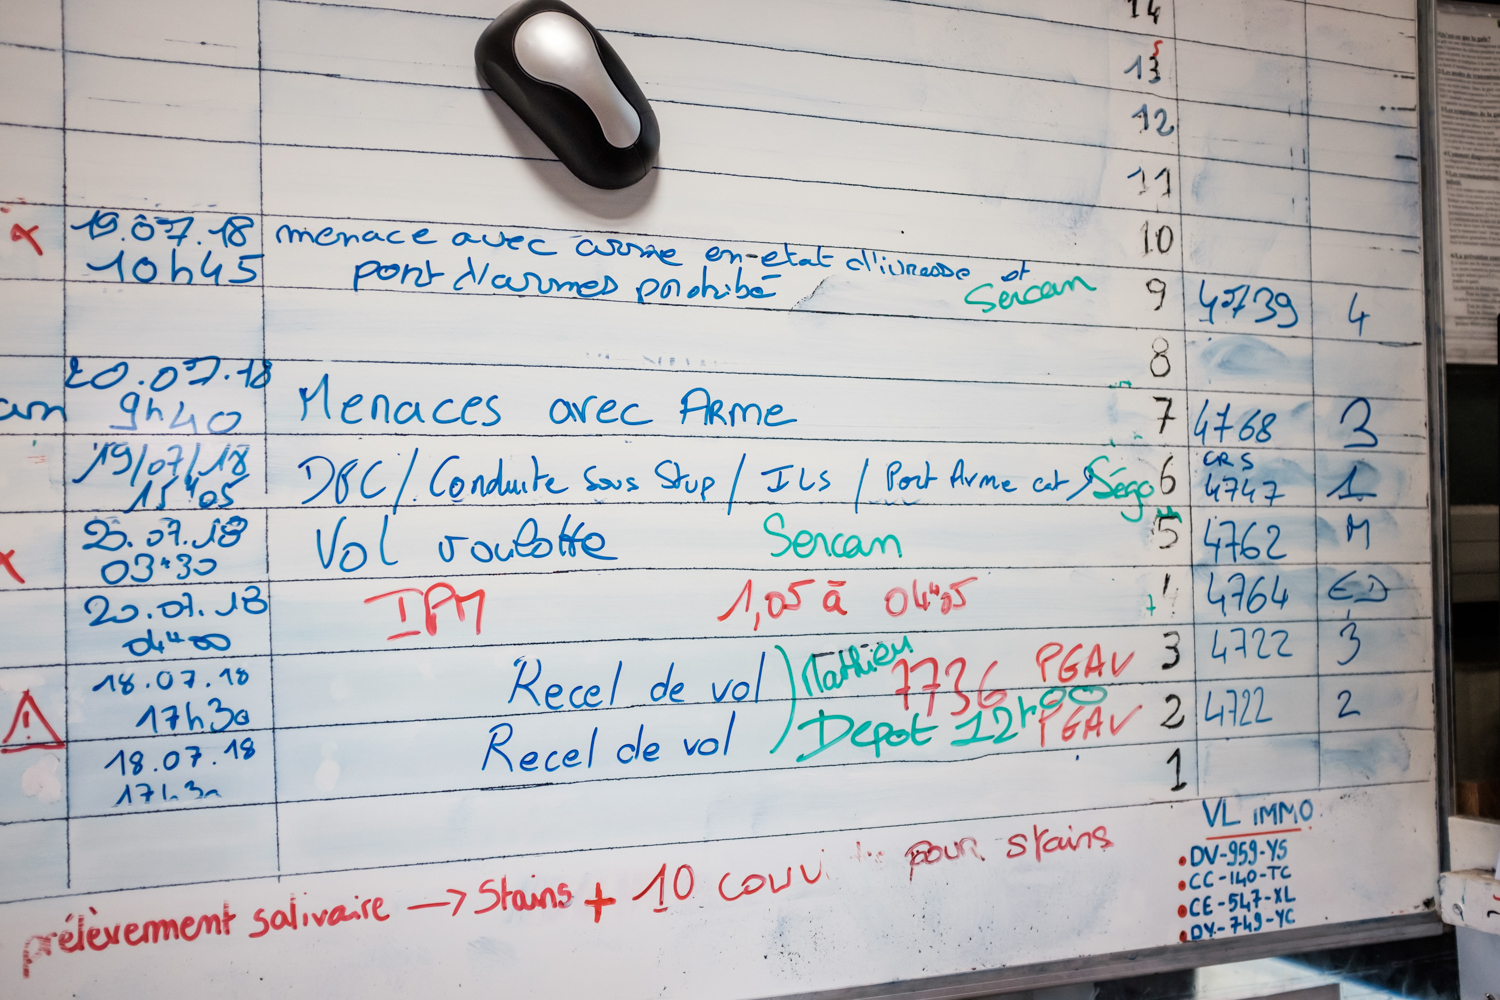 14
13
12
11
19.07.18 menace avec arme en-etat d'ivresse et 10
10h45 port d'armes prohibé Sercan 9 45739 4
8
20.07.18
9h40 Menaces avec ARME 7 4768 3
19/07/18 DPC / Conduite Sous Stup / ILS / Port Arme cat Ségo 6 CRS
15h05 4747 1
20.07.18 Vol roulotte Sercan 5 4762 M
03h30
20.07.18 IPM 1,05 à 04h05 4764
04h00
18.07.18 Recel de vol Mathieu 7736 PGAV 3 4722 3
17h30
18.07.18 Recel de vol Depot 12h00 PGAV 2 4722 2
17h30
1
prélèvement salivaire → Stains + 10 couv pour stains
VL IMMO
• DV-959-YS
• CC-140-TC
• CE-547-XL
• DY-749-YC